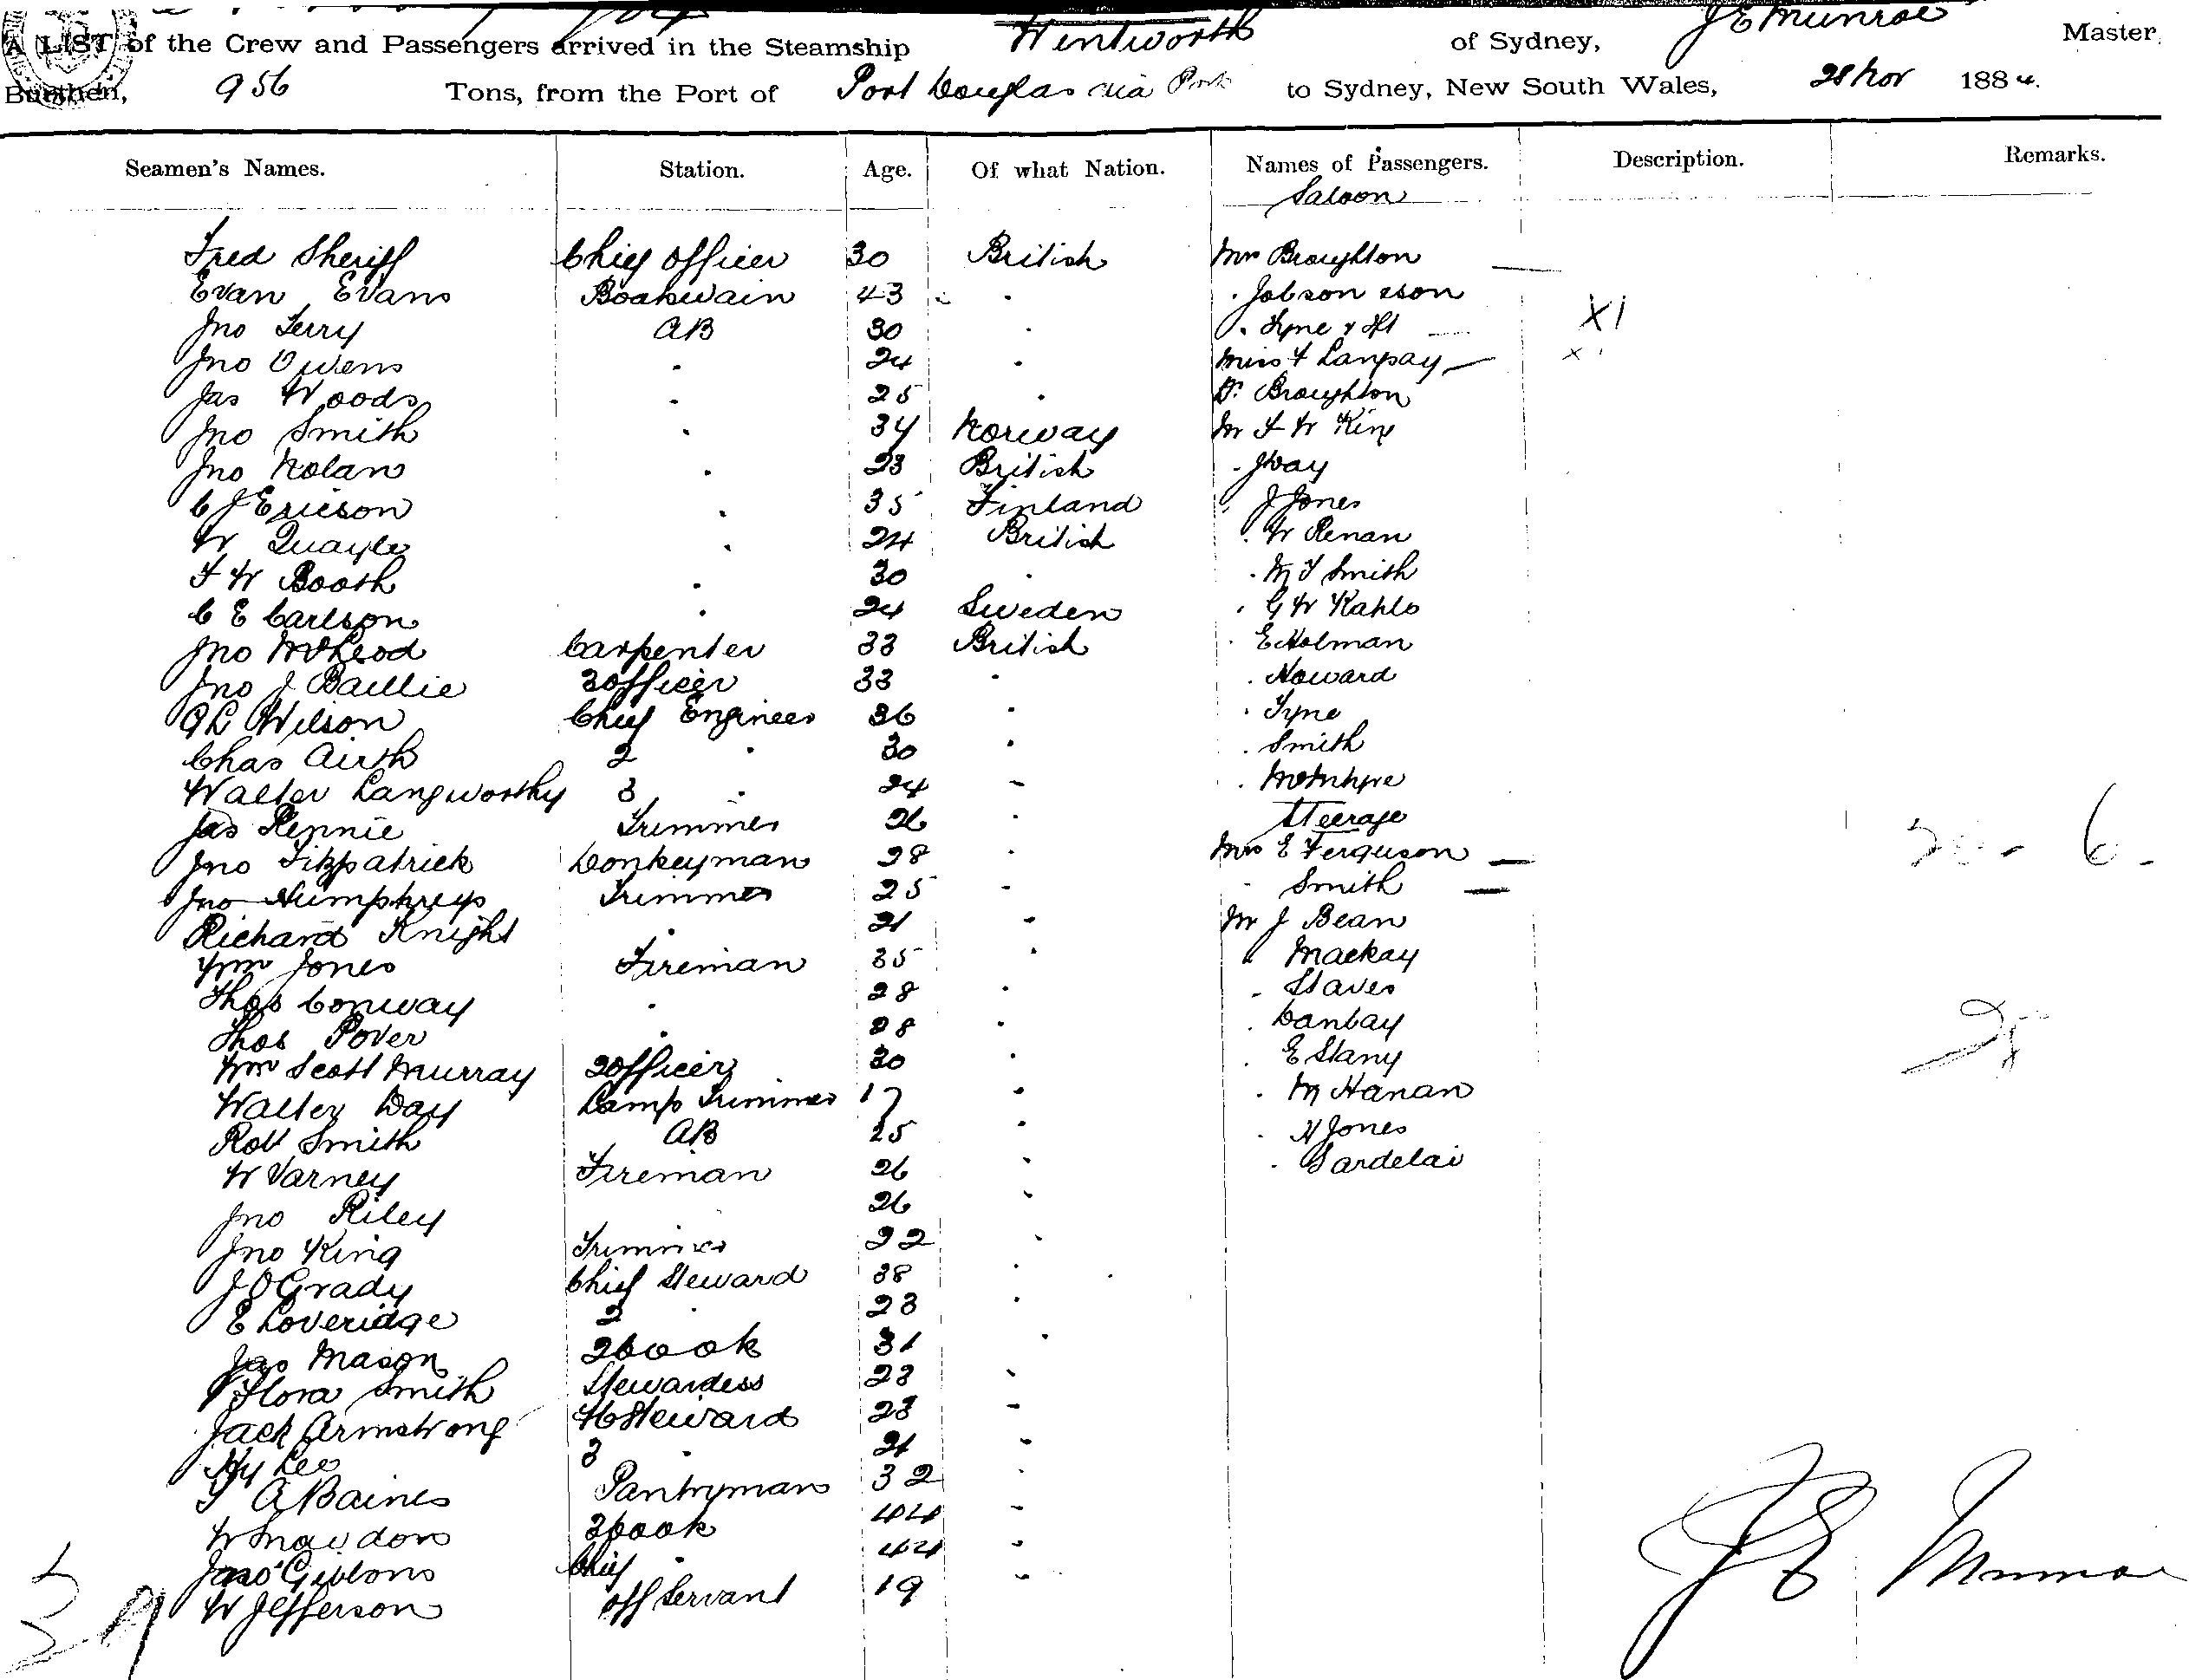 A LIST of the Crew and Passengers arrived in the Steamship Wentworth of Sydney, J E Munroe Master
Burthen, 956 Tons, from the Port of Port Douglas via Port to Sydney, New South Wales, 28 Nov 1884.
Seamen's Names. Station. Age. Of what Nation. Names of Passengers. Description. Remarks.
Saloon
Fred Sheriff Chief Officer 30 British Mrs Broughton
Evan Evans Boatswain 43 . . Jobson & son
Jno Terry AB 30 . . Tyne & X1
Jno Owens . 24 . Miss F Lanpay x
Jas Woods . 25 . Dr. Broughton
Jno Smith . 34 Norway Mr F W King
Jno Nolan . 23 British . J Day
C J Ericson . 35 Finland . J Jones
W Quayle . 24 British . W Renan
F W Booth . 30 . . M J Smith
C E Carlson . 24 Sweden . G W Kahlo
Jno McLeod Carpenter 33 British . E Holman
Jno J Baillie 3 Officer 33 . . Howard
A L Wilson Chief Engineer 36 . . Tyne
Chas Airth 2 . 30 . . Smith
Walter Langworthy 3 . 24 . . McIntyre
Jas Rennie Trimmer 26 . Steerage
Jno Fitzpatrick Donkeyman 28 . Mrs E Ferguson 6
Jno Humphreys Trimmer 25 . . Smith
Richard Knight . 21 . Mr J Bean
Wm Jones Fireman 35 . . Mackay
Thos Conway . 28 . . Staves
Thos Power . 28 . . Danbay
Wm Scott Murray 2 Officer 30 . . E Stany
Walter Day Lamp Trimmer 17 . . M Hanan
Robt Smith AB 25 . . H Jones
W Varney Fireman 26 . . Sardelai
Jno Riley 26 .
Jno King Trimmer 22 .
J O Grady Chief Steward 38 .
E Loveridge 2 . 23 .
Jas Mason 2 Cook 31 .
Flora Smith Stewardess 23 .
Jack Armstrong Steward 23 .
Hy Lee 3 . 21 .
A Baines Pantryman 32 .
W 3 Cook 44 .
Gibbons Chief . 44 .
W Jefferson Off Servant 19 .
39
J E Munroe